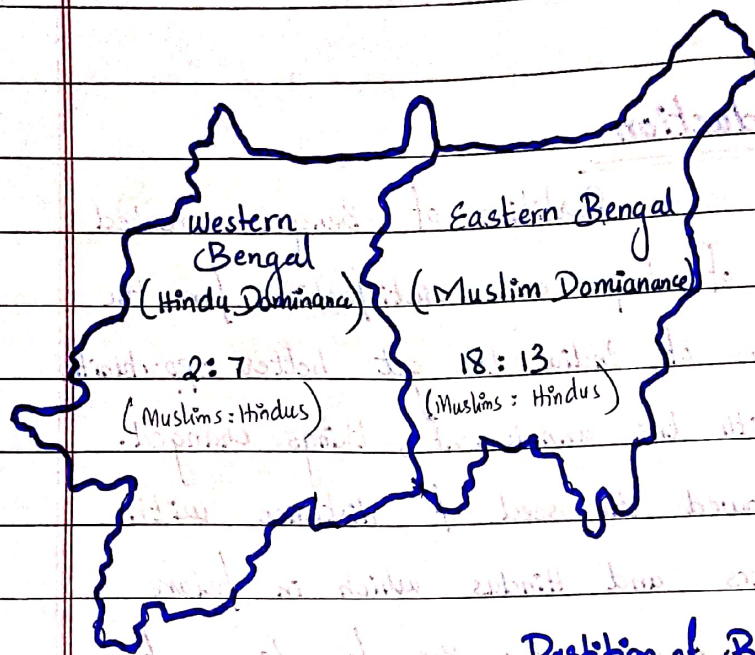 Western
Bengal
(Hindu Dominance)
2 : 7
(Muslims : Hindus)
Eastern Bengal
(Muslim Domianance)
18 : 13
(Muslims : Hindus)
Partition of